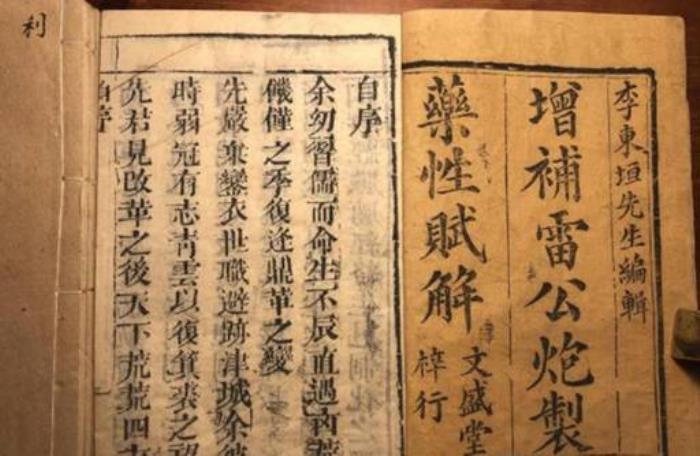 李東垣先生編輯
增補雷公炮製
藥性賦解
文盛堂
梓行
自序
余幼習儒而命生不辰直遇凶荒
饑僅之季復逢鼎革之變
先嚴棄鑾衣世職避跡津城余彼
時弱冠有志青雲以復箕裘之
先君見改革之後天下荒荒四
自序
利